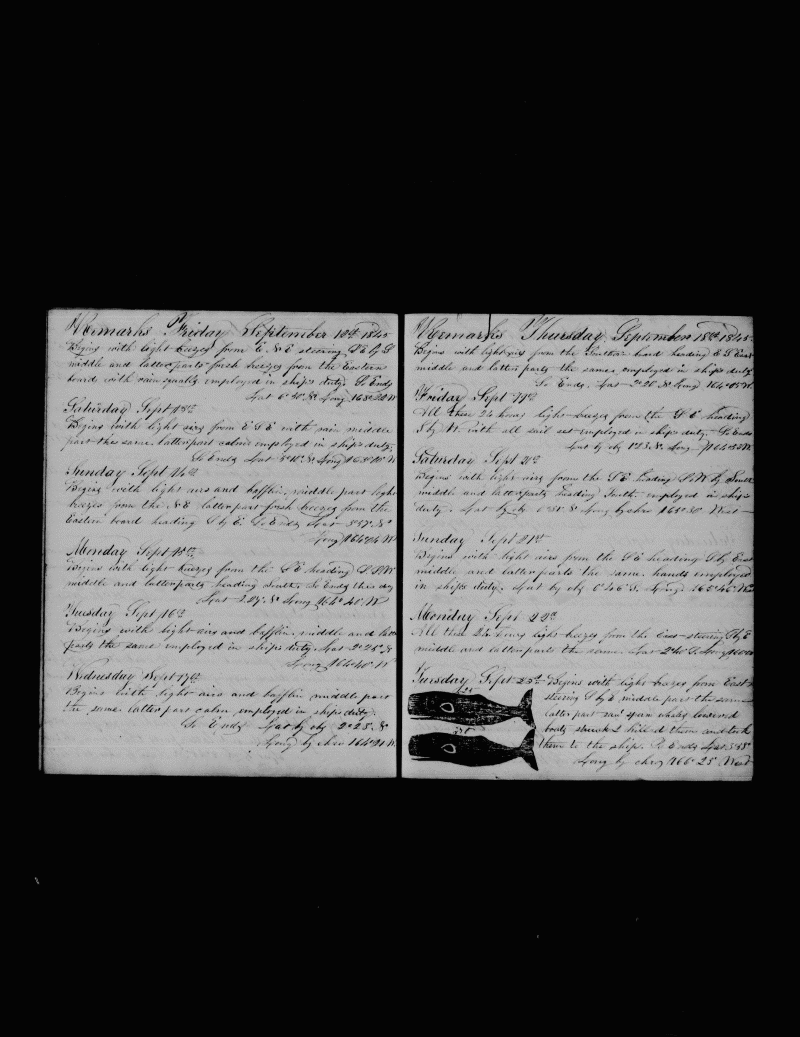 Remarks Friday September 12th 1845
Begins with light breezes from E. N E steering S E by S
middle and latter parts fresh breezes from the Eastern
board with rain squalls employed in ships duty. So Ends
Lat 6° N Long
Saturday Sept 13th
Begins with light airs from E S E with rain middle
part the same. latter part calm employed in ships duty.
So Ends Lat Long
Sunday Sept 14th
Begins with light airs and bafflin, middle part light
breezes from the N E latter part fresh breezes from the
Eastern board heading S by E. So Ends Lat
Long 164°
Monday Sept 15th
Begins with light breezes from the S E heading S S W
middle and latter parts heading South. So Ends this day
Lat Long 164° 40' W
Tuesday Sept 16th
Begins with light airs and bafflin, middle and latter
parts the same employed in ships duty. Lat 2° 25' N
Long 164° 40' W
Wednesday Sept 17th
Begins with light airs and bafflin middle part
the same. latter part calm, employed in ships duty.
So Ends Lat by obs 2° 25' N
Long by chro 164° W
Remarks Thursday September 18th 1845
Begins with light airs from the Southern board heading E S East
middle and latter parts the same, employed in ships duty
So Ends. Lat 2° 20' N Long 164° 05' W
Friday Sept 19th
All these 24 hours light breezes from the S E heading
S by W. with all sail set employed in ships duty. So Ends
Lat by obs Long
Saturday Sept
Begins with light airs from the S E heading S W by South
middle and latter parts heading South. employed in ships
duty. Lat by obs 0° N Long by chro 165° 30' West
Sunday Sept 21st
Begins with light airs from the S E heading S by East
middle and latter parts the same. hands employed
in ships duty. Lat by obs 0° 46' S. Long 165° 46' West
Monday Sept 22d
All these 24 hours light breezes from the East steering S by E
middle and latter parts the same. Lat 2° S. Long
Tuesday Sept 23d Begins with light breezes from East
steering S by E, middle part the same
latter part saw sperm whales lowered
boats struck 2 killed them and took
them to the ship. So Ends Lat
Long by chro 166° 25' West